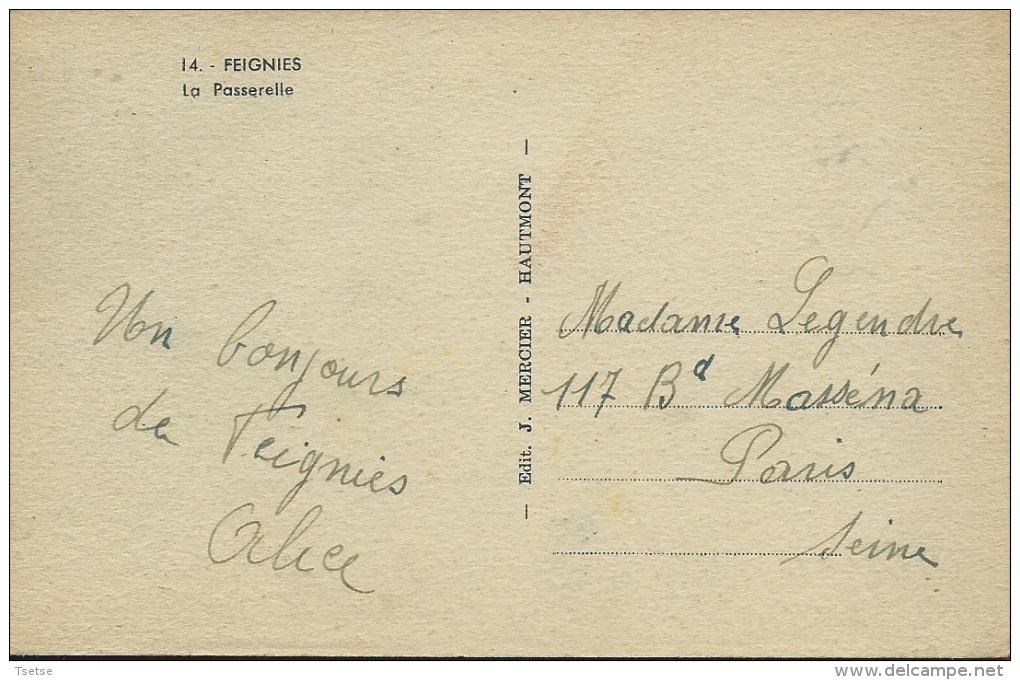 14. - FEIGNIES
La Passerelle
Un bonjours
de Feignies
Alice
— Edit. J. MERCIER - HAUTMONT —
Madame Legendre
117 Bd Masséna
Paris
Seine
Tsetse
www.delcampe.net